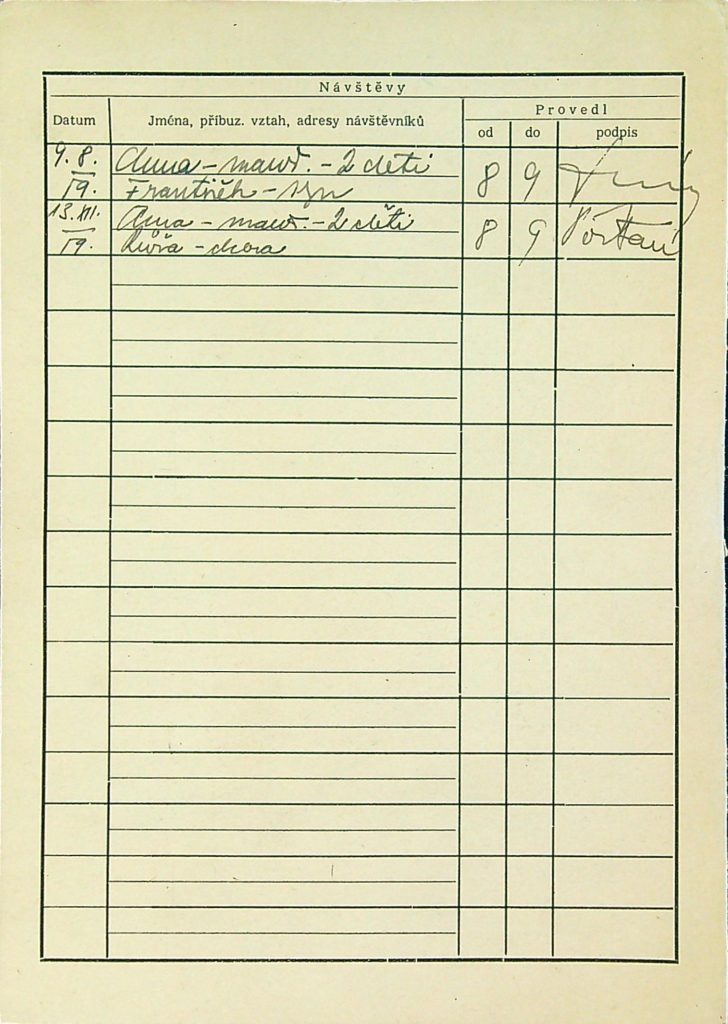 Návštěvy
Datum
Jména, příbuz. vztah, adresy návštěvníků
Provedl
od
do
podpis
9. 8. Anna – manž. – 2 děti 8 9
19. František – syn
13. XII. Anna – manž. – 2 děti 8 9
19. – dcera